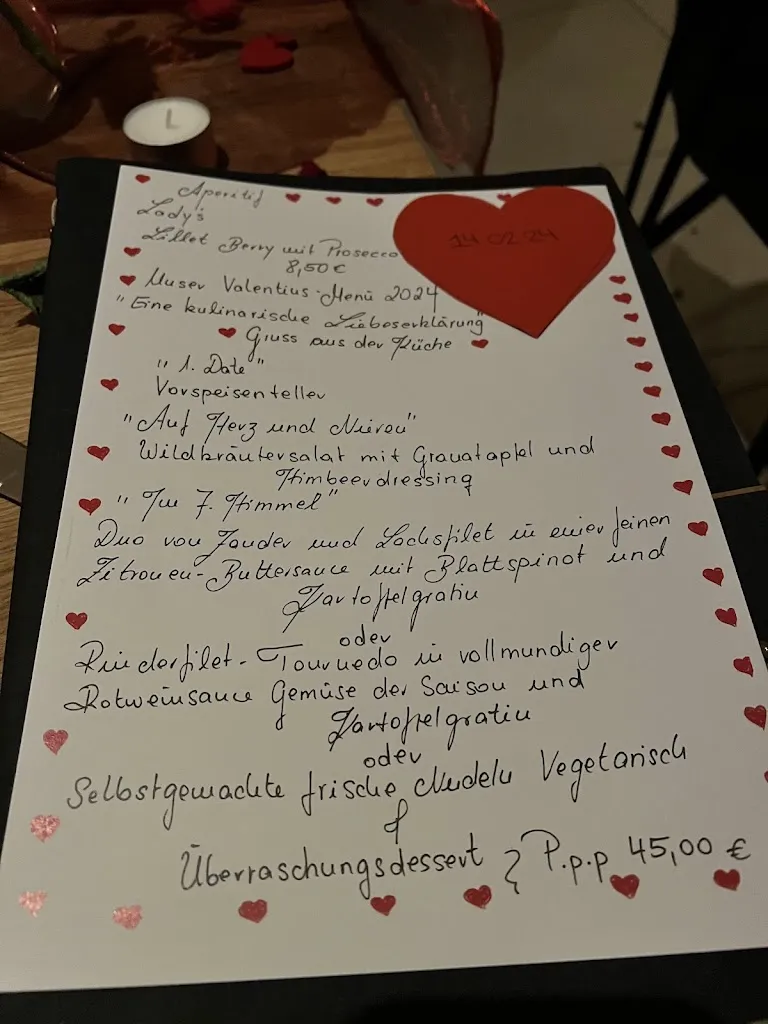 Aperitif
Lady's
Lillet Berry mit Prosecco
8,50€
14 02 24
Unser Valentins-Menü 2024
"Eine kulinarische Liebeserklärung"
Gruss aus der Küche
"1. Date"
Vorspeisenteller
"Auf Herz und Nieren"
Wildkräutersalat mit Granatapfel und
Himbeerdressing
"Im 7. Himmel"
Duo von Zander und Lachsfilet in einer feinen
Zitronen-Buttersauce mit Blattspinat und
Kartoffelgratin
oder
Rinderfilet-Tournedo in vollmundiger
Rotweinsauce Gemüse der Saison und
Kartoffelgratin
oder
Selbstgemachte frische Nudeln Vegetarisch
Überraschungsdessert } P.p.p 45,00 €